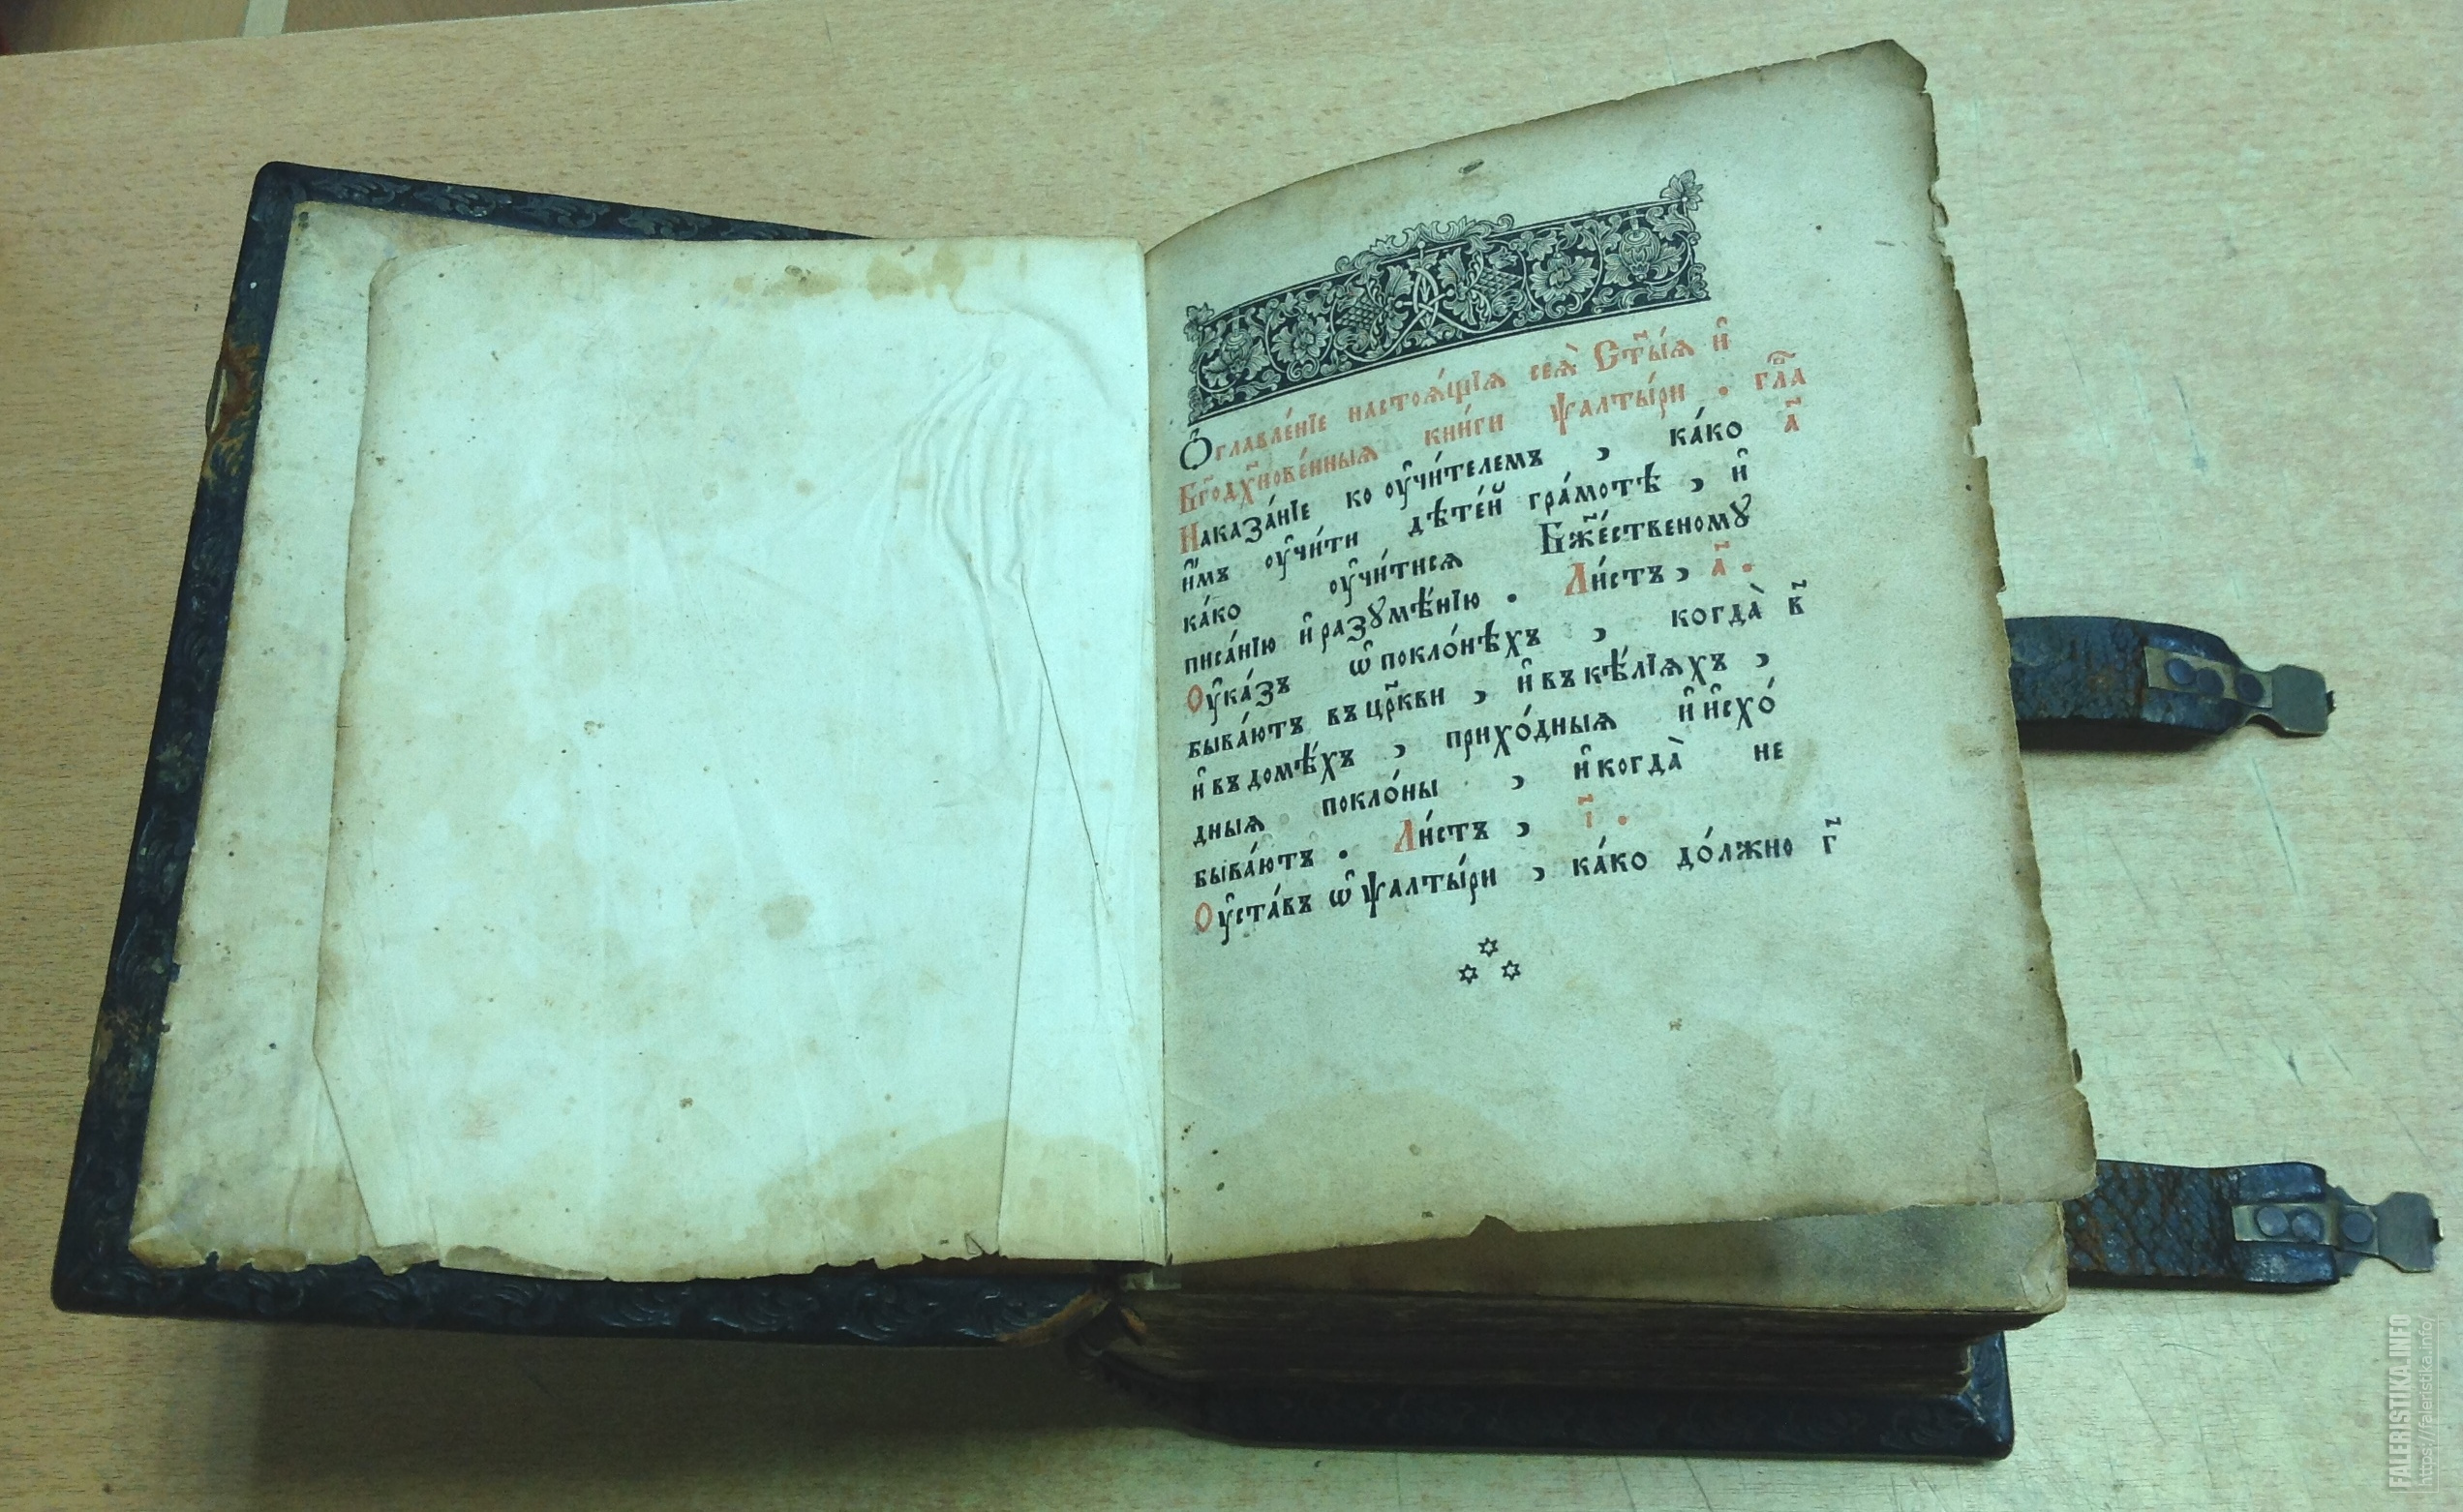 Ѻ҆главле́нїе настоѧ́щїѧ сеѧ̀ Ст҃ы́ѧ и҆
Бг҃одх҃нове́нныѧ кни́ги ѱалты́ри . гла҇в
Наказа́нїе ко оу҆чи́телемъ , ка́ко а҃
и҆̀мъ оу҆чи́ти дѣте́й гра́мотѣ , и҆
ка́ко оу҆чи́тисѧ Бж҃е́ственомꙋ
писа́нїю и҆ разꙋмѣ́нїю . Ли́стъ , а҃ .
Оу҆ка́зъ ѡ҆ покло́нѣхъ , когда̀ в҃
быва́ютъ въ цр҃кви , и҆ въ кѣ́лїѧхъ ,
и҆ въ домѣ́хъ , прихо́дныѧ и҆ и҆схо́
дныѧ покло́ны , и҆ когда̀ не
быва́ютъ . Ли́стъ , і҃ .
Оу҆ста́въ ѡ҆ ѱалты́ри , ка́ко до́лжно г҃
FALERISTIKA.INFO
https://faleristika.info/